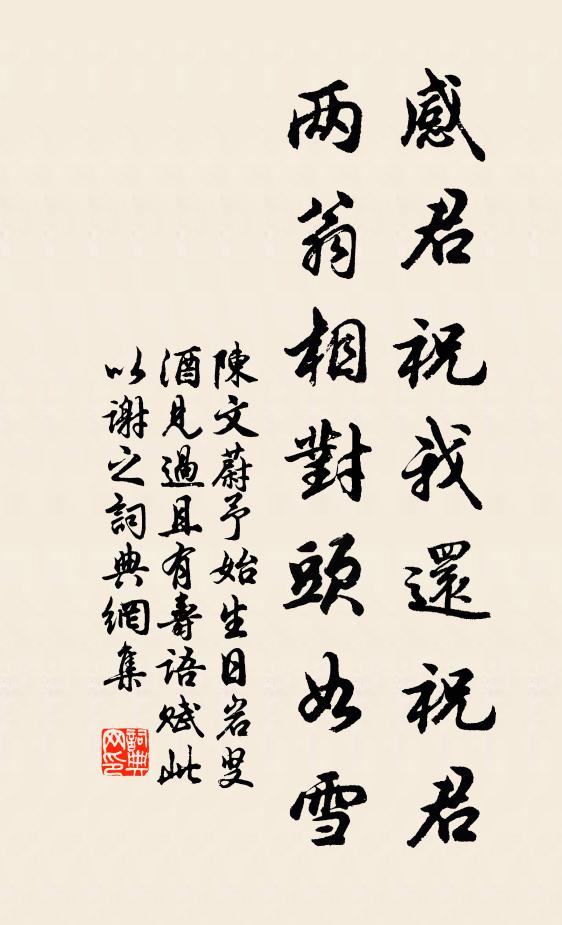 感君祝我還祝君
两翁相對頭如雪
陳文蔚予始生日岩叟
酒見過且有壽語賦此
以谢之詞典網集
詞典
网印